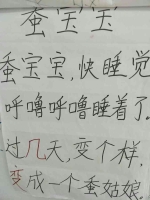 蚕宝宝
蚕宝宝,快睡觉
呼噜呼噜睡着了。
过几天,变个样,
变成一个蚕姑娘。